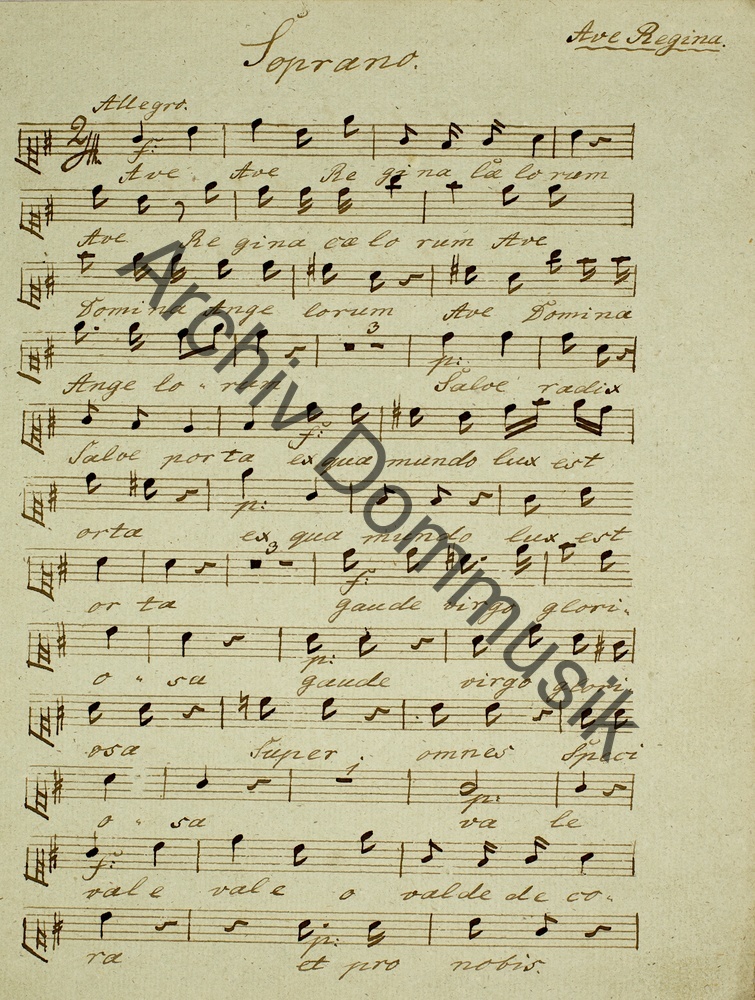 Ave Regina.
Soprano.
Allegro.
f:
Ave Ave Re gina Cæ lo rum
Ave Re gina cæ lo rum Ave
Domina Ange lorum Ave Domina
3
p:
Ange lo " rum Salve radix
f:
Salve porta ex qua mundo lux est
p:
orta ex qua mundo lux est
3
f:
or ta gaude virgo glori"
p:
o " sa gaude virgo glori"
osa Super omnes Speci
1
p:
o " sa va le
f:
vale vale o valde de co"
p:
ra et pro nobis.
Archiv Dommusik